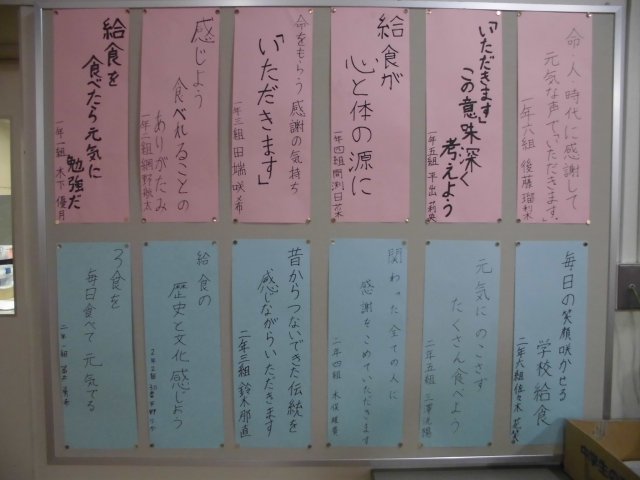 命・人・時代に感謝して
元気な声で「いただきます」
一年六組 後藤瑠利木
「いただきます」
この意味深く
考えよう
一年五組 平出
給食が
心と体の源に
一年四組 間渕日菜
命をもらう 感謝の気持ち
「いただきます」
一年三組 田端咲希
感じよう
食べれることの
ありがたみ
一年二組 網野
給食を
食べたら元気に
勉強だ
一年一組 木下優月
毎日の笑顔咲かせる
学校給食
二年六組 佐々木
元気に のこさず
たくさん食べよう
二年五組
関わった全ての人に
感謝をこめていただきます
二年四組 木俣
昔からつないできた伝統を
感じながらいただきます
二年三組 鈴木那直
給食の
歴史と文化 感じよう
2年2組
3食を
毎日食べて 元気でる
二年一組